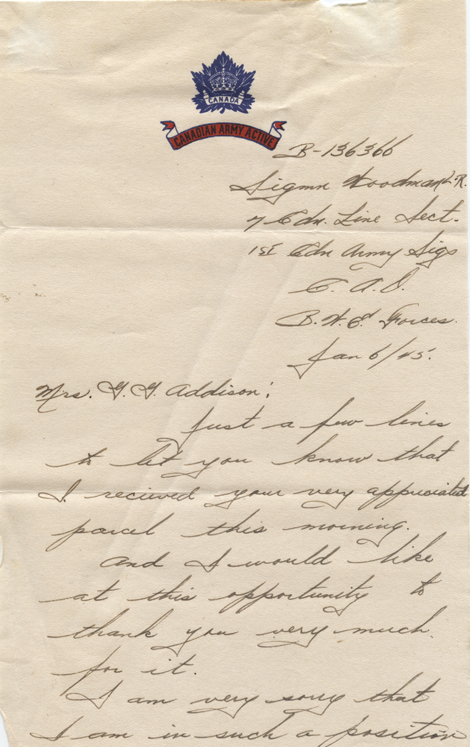 CANADA
CANADIAN ARMY ACTIVE
B-136366
Sigmn Woodman R.
7 Cdn. Line Sect.
1st Cdn Army Sigs
C. A. O.
B. W. E. Forces.
Jan 6/45.
Mrs. G. G. Addison;
Just a few lines
to let you know that
I recieved your very appreciated
parcel this morning.
And I would like
at this opportunity to
thank you very much
for it.
I am very sorry that
I am in such a position